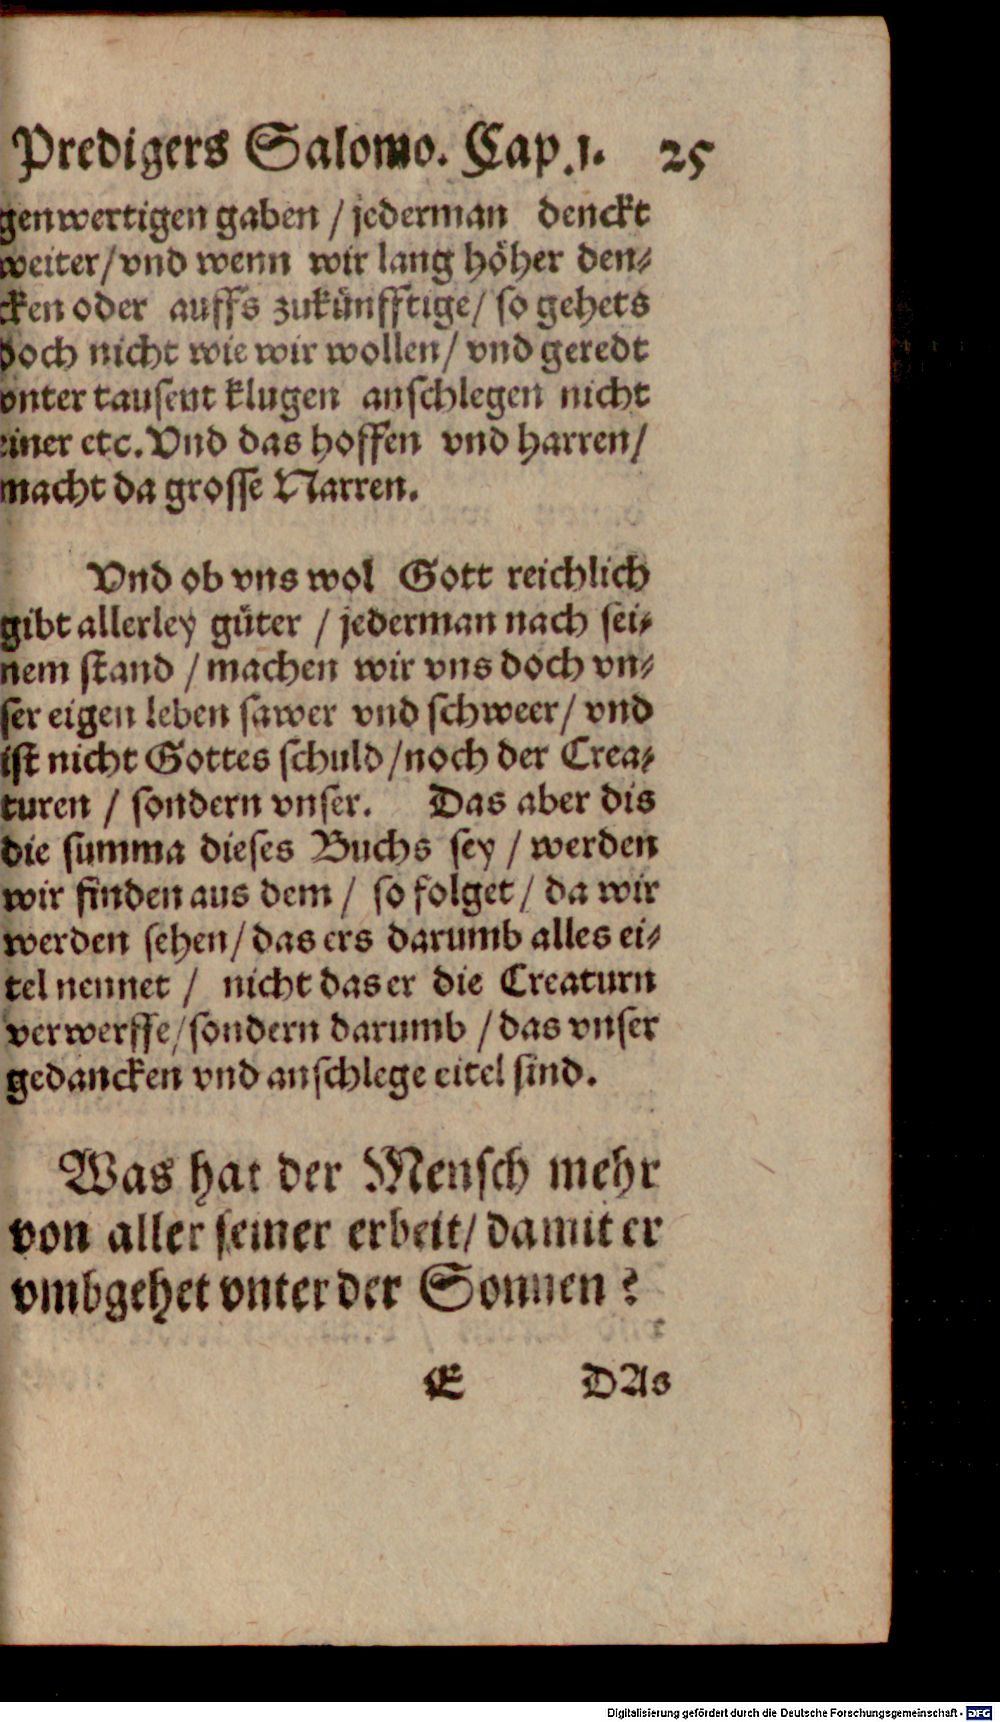 Predigers Salomo. Cap. 1. 25
genwertigen gaben / jederman denckt
weiter / vnd wenn wir lang höher den-
cken oder auffs zukünfftige / so gehets
doch nicht wie wir wollen / vnd geredt
vnter tausent klugen anschlegen nicht
einer etc. Vnd das hoffen vnd harren /
macht da grosse Narren.
Vnd ob vns wol Gott reichlich
gibt allerley güter / jederman nach sei-
nem stand / machen wir vns doch vn-
ser eigen leben sawer vnd schweer / vnd
ist nicht Gottes schuld / noch der Crea-
turen / sondern vnser. Das aber dis
die summa dieses Buchs sey / werden
wir finden aus dem / so folget / da wir
werden sehen / das ers darumb alles ei-
tel nennet / nicht das er die Creaturn
verwerffe / sondern darumb / das vnser
gedancken vnd anschlege eitel sind.
Was hat der Mensch mehr
von aller seiner erbeit / damit er
vmbgehet vnter der Sonnen?
E DAs
Digitalisierung gefördert durch die Deutsche Forschungsgemeinschaft - DFG